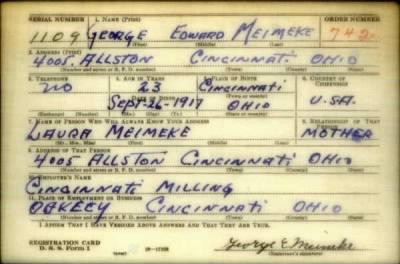 SERIAL NUMBER 1. NAME (Print) ORDER NUMBER
1109 GEORGE EDWARD MEIMEKE 742
(First) (Middle) (Last)
2. ADDRESS (Print)
4005. ALLSTON CINCINNATI OHIO
(Number and street or R. F. D. number) (Town) (County) (State)
3. TELEPHONE 4. AGE IN YEARS 5. PLACE OF BIRTH 6. COUNTRY OF CITIZENSHIP
NO 23 CINCINNATI
DATE OF BIRTH
Sept-26-1917 OHIO U.S.A.
7. NAME OF PERSON WHO WILL ALWAYS KNOW YOUR ADDRESS 8. RELATIONSHIP OF THAT PERSON
LAURA MEIMEKE MOTHER
(Mr., Mrs., Miss) (First) (Middle) (Last)
9. ADDRESS OF THAT PERSON
4005 ALLSTON CINCINNATI OHIO
(Number and street or R. F. D. number) (Town) (County) (State)
10. EMPLOYER'S NAME
CINCINNATI MILLING
11. PLACE OF EMPLOYMENT OR BUSINESS
OAKELY CINCINNATI OHIO
(Number and street or R. F. D. number) (Town) (County) (State)
I AFFIRM THAT I HAVE VERIFIED ABOVE ANSWERS AND THAT THEY ARE TRUE.
REGISTRATION CARD
D. S. S. Form 1 George E Meimeke
(Registrant's signature)